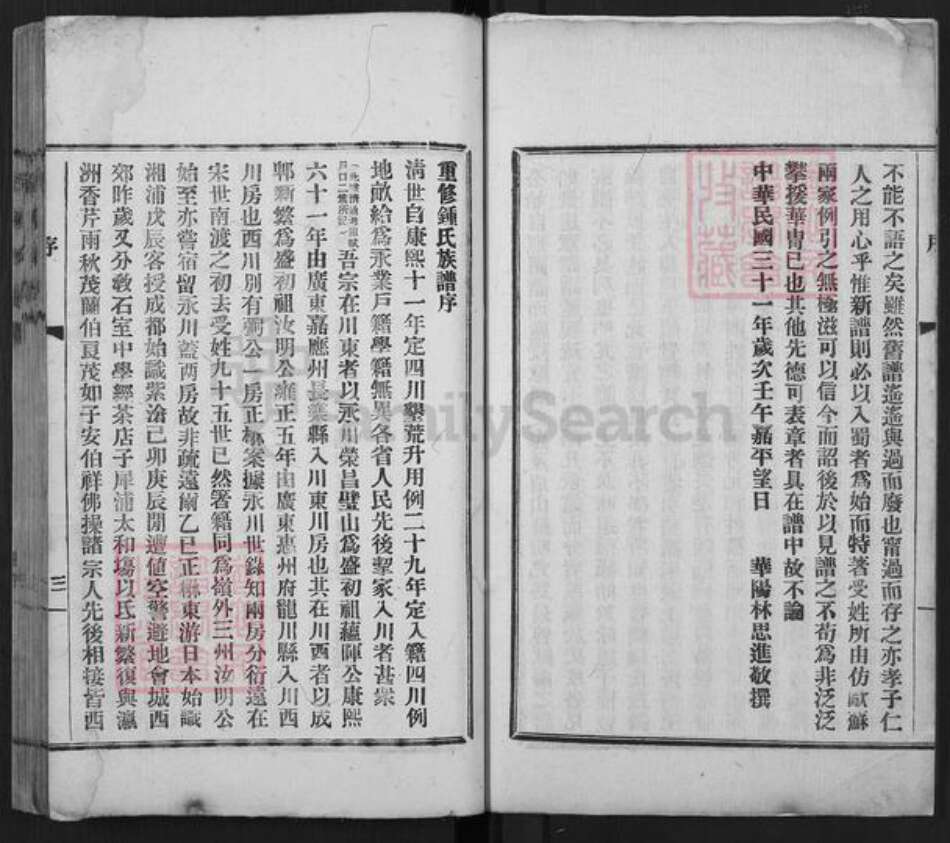 不能不語之矣雖然舊譜遙遙與過而廢也甯過而存之亦孝子仁
人之用心乎惟新譜則必以入蜀者爲始而特著受姓所由仿歐蘇
兩家例引之無極滋可以信今而詔後於以見譜之不苟爲非泛泛
攀援華冑已也其他先德可表章者具在譜中故不論
中華民國三十一年歲次壬午嘉平望日 華陽林思進敬撰
序
重修鍾氏族譜序
淸世自康熙十一年定四川墾荒升用例二十九年定入籍四川例
地畝給爲永業戶籍學籍無異各省人民先後挈家入川者甚衆
吾宗在川東者以永川榮昌璧山爲盛初祖蘊暉公康熙
六十一年由廣東嘉應州長樂縣入川東川房也其在川西者以成
郫新繁爲盛初祖汝明公雍正五年由廣東惠州府龍川縣入川西
川房也西川別有公一房正案據永川世錄知兩房分衍遠在
宋世南渡之初去受姓九十五世已然箸籍同爲嶺外三州汝明公
始至亦嘗宿留永川蓋兩房故非疏遠爾乙巳正東游日本始識
湘浦戊辰客授成都始識紫滄己卯庚辰間遭値空警避地會城西
郊昨歲又分敎石室中學經茶店子犀浦太和場以氐新繁復與瀛
洲香芹雨秋茂蘭伯亘茂如子安伯祥佛操諸宗人先後相接皆西
序
三
FamilySearch